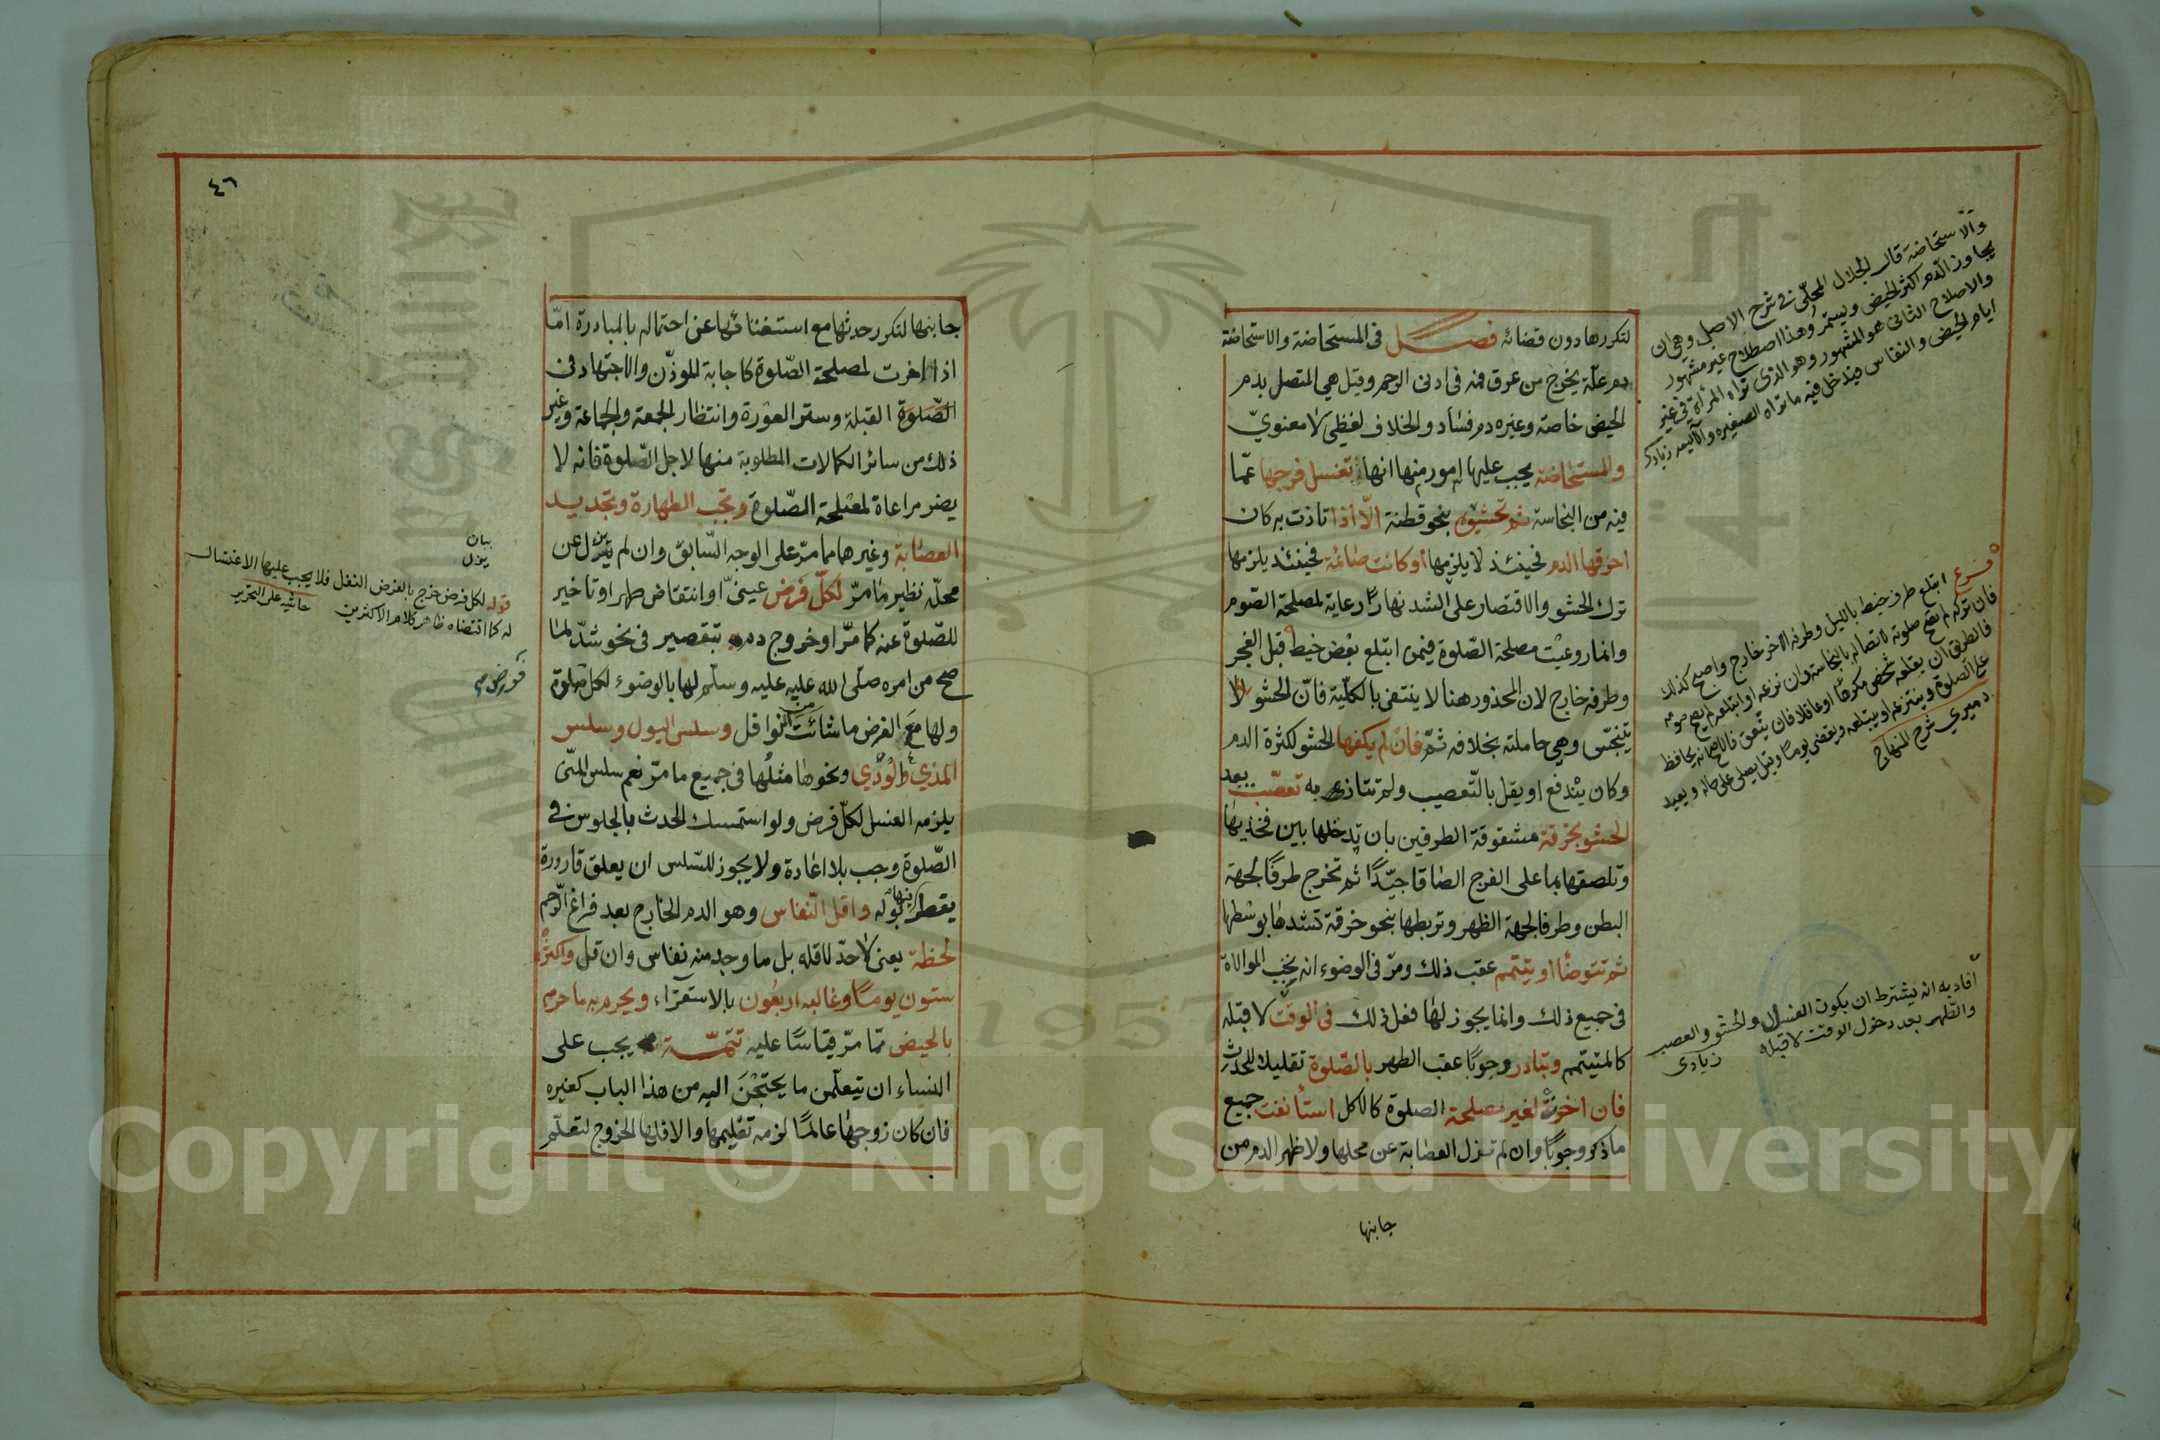 لتكررها دون قضائه فصل فى المستحاضة والاستحاضة
دم علة يخرج من عرق فمه فى ادنى الرحم وقيل هى المتصل بدم
الحيض خاصة وغيره دم فساد والخلاف لفظى لا معنوىّ
والمستحاضة يجب عليها امور منها انها تغسل فرجها عمّا
فيه من النجاسة ثم تحشوه بنحو قطنة الّا اذا تاذت به كان
احرقها الدم فحينئذ لا يلزمها او كانت صائمة فحينئذ يلزمها
ترك الحشو والاقتصار على الشد نهارًا رعاية لمصلحة الصّوم
وانما روعيت مصلحة الصّلوة فيمن ابتلع بعض خيط قبل الفجر
وطرفه خارج لان المحذور هنا لا ينتفى بالكلّية فانّ الحشو لا
يتنجّس وهى حاملته بخلافه ثمّ فان لم يكفها الحشو لكثرة الدم
وكان يندفع او يقل بالتّعصيب ولم تتاذى به تعصّب بعد
الحشو بخرقة مشقوقة الطرفين بان تدخلها بين فخذيها
وتلصقها بما على الفرج الصاقا جيّدًا ثم تخرج طرفًا لجهة
البطن وطرفا لجهة الظهر وتربطها بنحو خرقة تشدها بوسطها
ثم تتوضأ او تتيمم عقب ذلك ومرّ فى الوضوء انه يجب الموالاة
فى جميع ذلك وانما يجوز لها فعل ذلك فى الوقت لا قبله
كالمتيمم وتبادر وجوبًا عقب الطهر بالصّلوة تقليلا للحدث
فان اخرت لغير مصلحة الصلوة كالاكل استأنفت جميع
ما ذكر وجوبًا وان لم تزل العصابة عن محلها ولا ظهر الدم من
جابنها
والاستحاضة قال الجلال المحلّى فى شرح الاصل وهى ان
يجاوز الدم اكثر الحيض ويستمر وهذا اصطلاح غير مشهور
والاصلاح الثانى هو المشهور وهو الذى تراه المرأة فى غير
ايام الحيض والنفاس فيدخل فيه ما تراه الصغيره والآيسه زيادى
فرع ابتلع طرف خيط بالليل وطرفه الآخر خارج واصبح كذلك
فان تركه لم تصح صلوته لاتصاله بالنجاسة وان نزعه او ابتلعه لم يصح صومه
فالطريق ان يقلعه شخص مكرهًا او غافلا فان يتفق فالاصح انه يحافظ
على الصلوة وينتزعه او يبتلعه ويقضى يومًا وقيل يصلى على حاله ويعيد
دميرى شرح المنهاج
أفاد به انه يشترط ان يكون الغسل والحشو والعصب
والطهر بعد دخول الوقت لا قبله زيادى
٤٦
جابنها لتكرر حدثها مع استغنائها عن احتماله بالمبادرة امّا
اذا اخرت لمصلحة الصّلوة كاجابة الموذّن والاجتهاد فى
الصّلوة القبلة وستر العورة وانتظار الجمعة والجماعة وغير
ذلك من سائر الكمالات المطلوبة منها لاجل الصّلوة فانه لا
يضر مراعاة لمصلحة الصّلوة وتجب الطهارة وتجديد
العصابة وغيرهما مما مرّ على الوجه السّابق وان لم تزل عن
محلّه نظير ما مرّ لكلّ فرض عينىّ او انتقاض طهر او تاخير
للصّلوة عنه كما مرّ او خروج دم بتقصير فى نحو شدّ لما
صح من امره صلّى الله عليه وسلّم لها بالوضوء لكل صلوة
ولها مع الفرض ما شائت من النوافل وسلس البول وسلس
المذى والودى ونحوها مثلها فى جميع ما مرّ نعم سلس المنّى
يلزمه الغسل لكلّ فرض ولو استمسك الحدث بالجلوس فى
الصّلوة وجب بلا اعادة ولا يجوز للسّلس ان يعلق قارورة
يقطر فيها بوله واقل النّفاس وهو الدم الخارج بعد فراغ الرّحم
لحظة يعنى لا حدّ لاقله بل ما وجد منه نفاس وان قل واكثره
ستون يومًا وغالبه اربعون بالاستقرآء ويحرم به ما حرم
بالحيض ممّا مرّ قياسًا عليه تتمّة يجب على
النساء ان تتعلّمن ما يحتجن اليه من هذا الباب كغيره
فان كان زوجها عالمًا لزمه تعليمها والا فلها الخروج لتعلّم
بيان
يزل
قوله لكل فرض خرج بالفرض النفل فلا يجب عليها الاغتسال
له كما اقتضاه ظاهر كلام الاكثرين حاشيه على التحرير
Copyright © King Saud University
1957